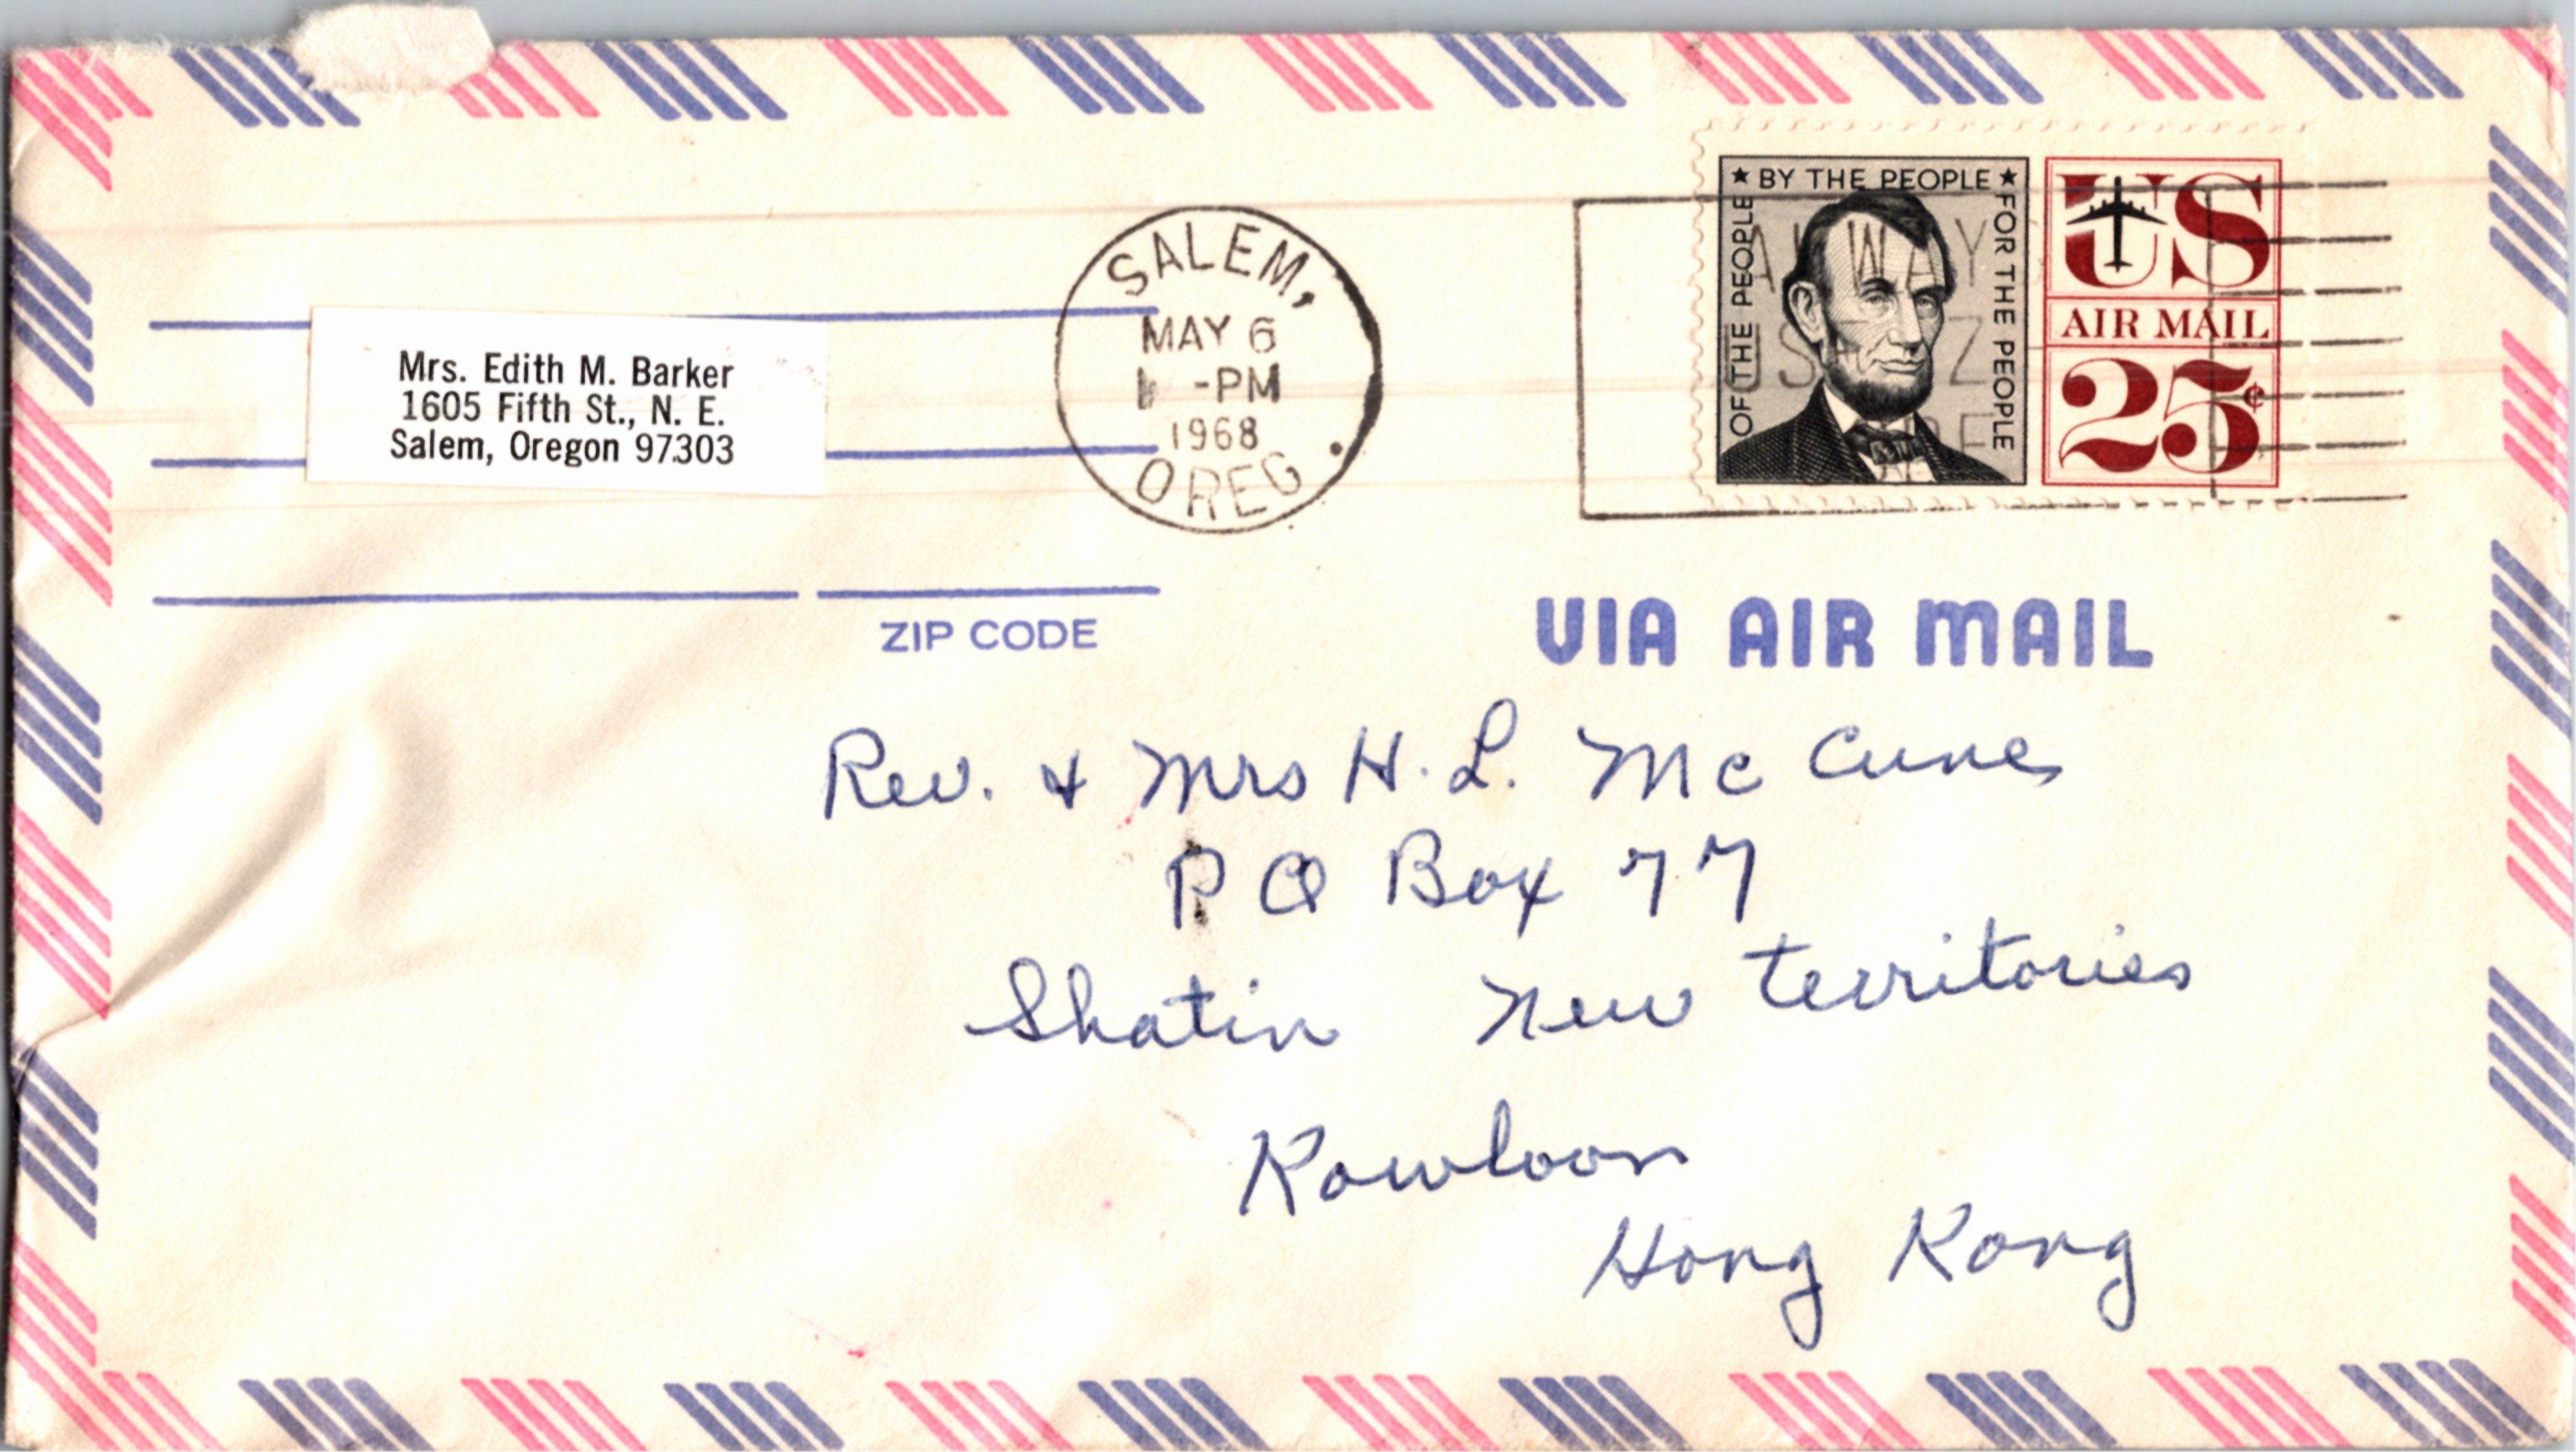 Mrs. Edith M. Barker
1605 Fifth St., N. E.
Salem, Oregon 97303
ZIP CODE
SALEM,
MAY 6
-PM
1968
OREG.
OF THE PEOPLE ★ BY THE PEOPLE ★ FOR THE PEOPLE
US
AIR MAIL
25¢
VIA AIR MAIL
Rev. & Mrs H. L. Mc Cune
P O Box 77
Shatin New Territories
Kowloon
Hong Kong